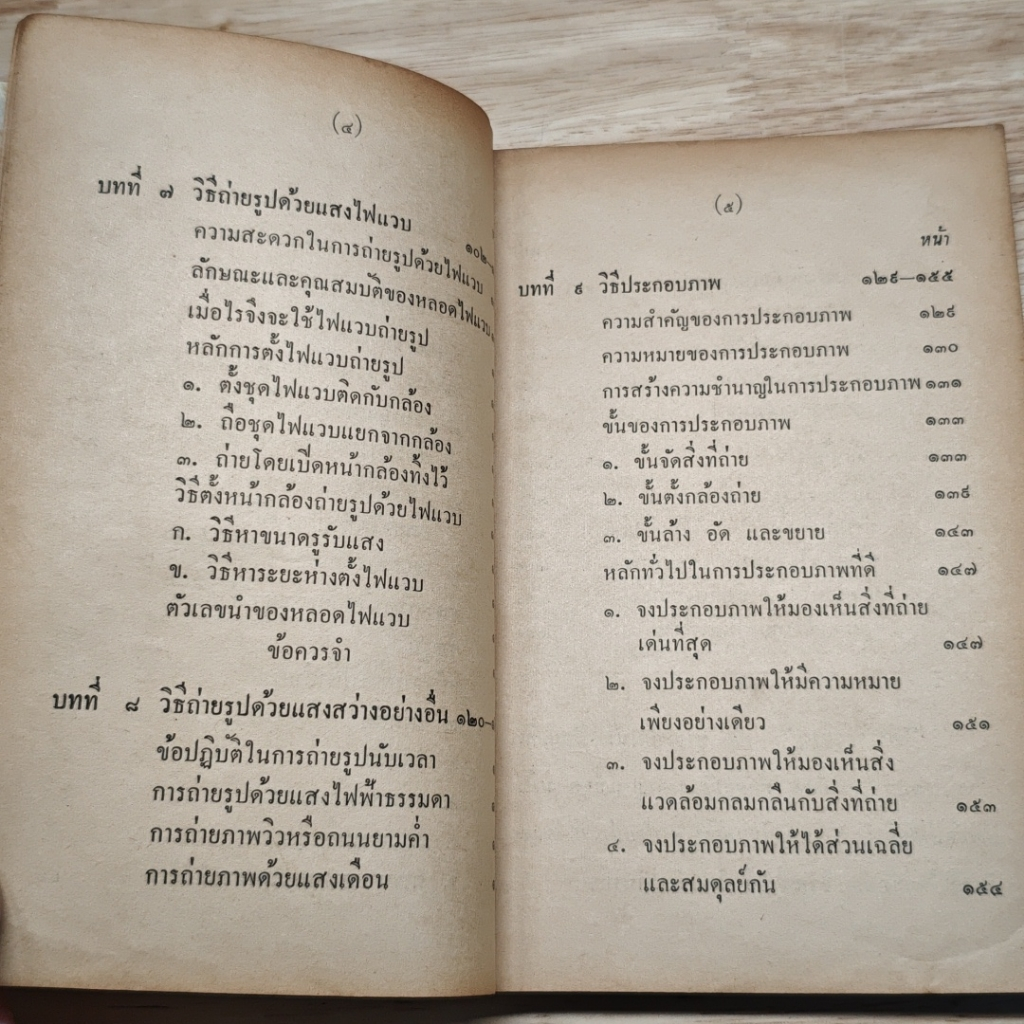 (๔)
บทที่ ๗ วิธีถ่ายรูปด้วยแสงไฟแวบ ๑๐๒—
ความสะดวกในการถ่ายรูปด้วยไฟแวบ
ลักษณะและคุณสมบัติของหลอดไฟแวบ
เมื่อไรจึงจะใช้ไฟแวบถ่ายรูป
หลักการตั้งไฟแวบถ่ายรูป
๑. ตั้งชุดไฟแวบติดกับกล้อง
๒. ถือชุดไฟแวบแยกจากกล้อง
๓. ถ่ายโดยเปิดหน้ากล้องทิ้งไว้
วิธีตั้งหน้ากล้องถ่ายรูปด้วยไฟแวบ
ก. วิธีหาขนาดรูรับแสง
ข. วิธีหาระยะห่างตั้งไฟแวบ
ตัวเลขนำของหลอดไฟแวบ
ข้อควรจำ
บทที่ ๘ วิธีถ่ายรูปด้วยแสงสว่างอย่างอื่น ๑๒๐—
ข้อปฏิบัติในการถ่ายรูปนับเวลา
การถ่ายรูปด้วยแสงไฟฟ้าธรรมดา
การถ่ายภาพวิวหรือถนนยามค่ำ
การถ่ายภาพด้วยแสงเดือน
(๕)
หน้า
บทที่ ๙ วิธีประกอบภาพ ๑๒๙—๑๕๕
ความสำคัญของการประกอบภาพ ๑๒๙
ความหมายของการประกอบภาพ ๑๓๐
การสร้างความชำนาญในการประกอบภาพ ๑๓๑
ขั้นของการประกอบภาพ ๑๓๓
๑. ขั้นจัดสิ่งที่ถ่าย ๑๓๓
๒. ขั้นตั้งกล้องถ่าย ๑๓๙
๓. ขั้นล้าง อัด และขยาย ๑๔๓
หลักทั่วไปในการประกอบภาพที่ดี ๑๔๗
๑. จงประกอบภาพให้มองเห็นสิ่งที่ถ่าย
เด่นที่สุด ๑๔๗
๒. จงประกอบภาพให้มีความหมาย
เพียงอย่างเดียว ๑๕๑
๓. จงประกอบภาพให้มองเห็นสิ่ง
แวดล้อมกลมกลืนกับสิ่งที่ถ่าย ๑๕๓
๔. จงประกอบภาพให้ได้ส่วนเฉลี่ย
และสมดุลย์กัน ๑๕๔